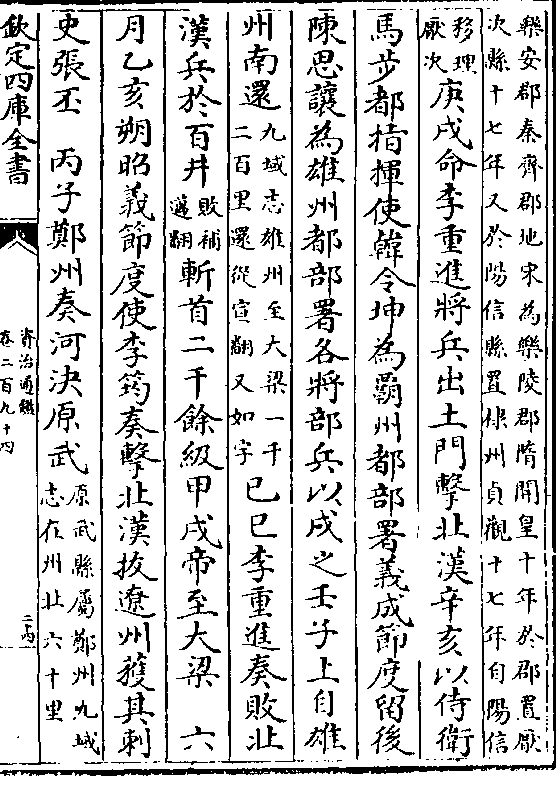 樂安郡秦齊郡地宋為樂陵郡隋開皇十年於郡置厭
次縣十七年又於陽信縣置棣州貞觀十七年自陽信
移理
厭次
庚戌命李重進將兵出土門擊北漢辛亥以侍衛
馬步都指揮使韓令坤為霸州都部署義成節度留後
陳思讓為雄州都部署各將部兵以戍之壬子上自雄
州南還
九域志雄州至大梁一千
二百里還從宣翻又如字
己巳李重進奏敗北
漢兵於百井
敗補
邁翻
斬首二千餘級甲戌帝至大梁 六
月乙亥朔昭義節度使李筠奏擊北漢拔遼州獲其刺
史張丕 丙子鄭州奏河決原武
原武縣屬鄭州九域
志在州北六十里
欽定四庫全書
資治通鑑
卷二百九十四